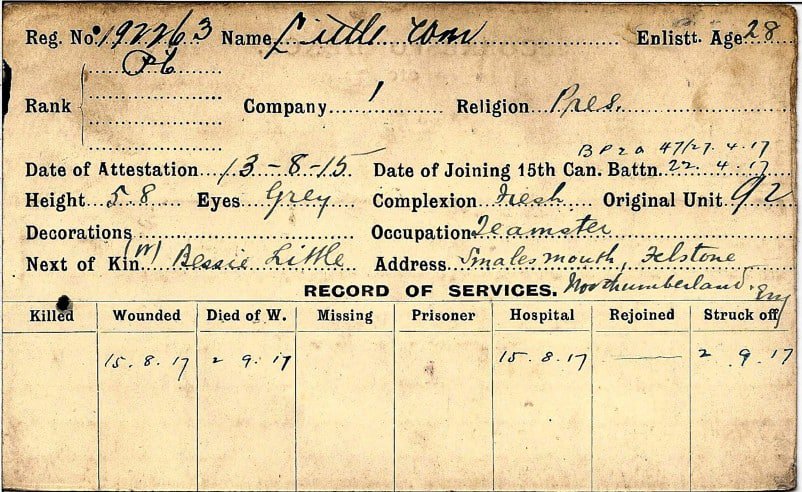 Reg. No. 192263 Name Little Wm Enlistt. Age 28
Pte
Rank Company 1 Religion Pres.
B P 2 0 47/27. 4. 17
Date of Attestation 13-8-15 Date of Joining 15th Can. Battn. 22. 4. 17
Height 5.8 Eyes Grey Complexion Fresh Original Unit 92
Decorations Occupation Teamster
Next of Kin (W) Bessie Little Address Smalesmouth, Felstone
RECORD OF SERVICES. Northumberland. Eng
Killed Wounded Died of W. Missing Prisoner Hospital Rejoined Struck off
15.8.17 2 9.17 15.8.17 2.9.17